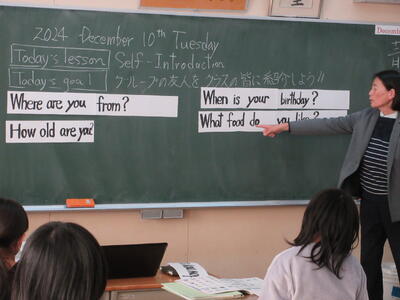 2024 December 10th Tuesday
Today's lesson Self-Introduction
Today's goal グループの友人をクラスの皆に紹介しよう!!
Where are you from?
When is your birthday?
How old are you?
What food do you like?